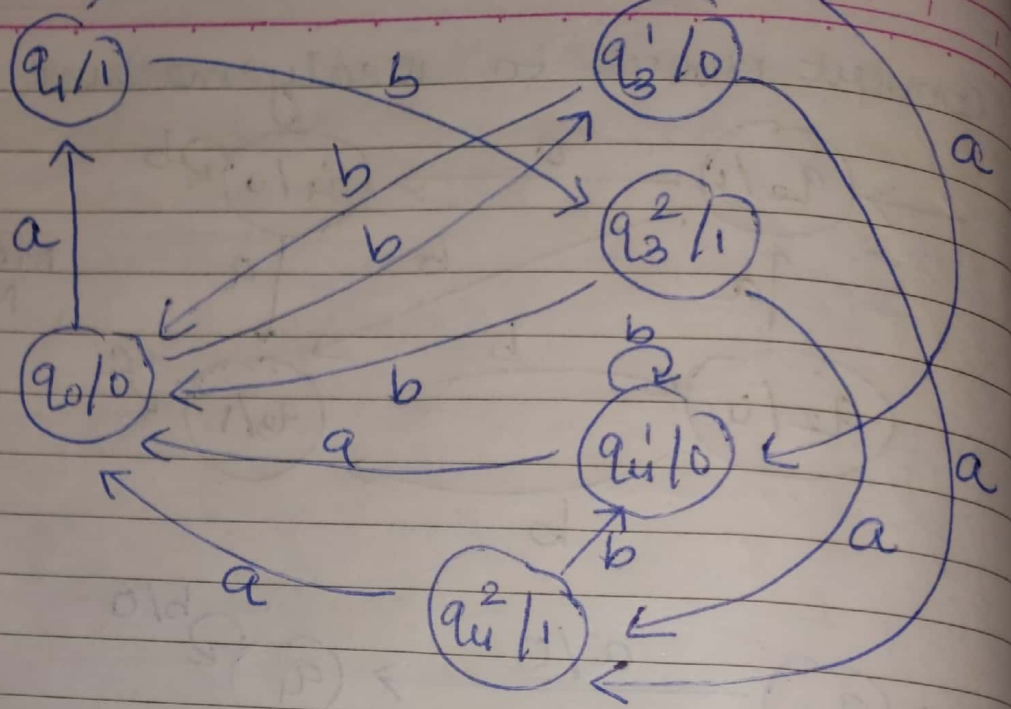 q₁/1
b
q₃¹/0
a
b
b
q₃²/1
a
b
q₀/0
b
a
q₄¹/0
a
a
b
a
q₄²/1